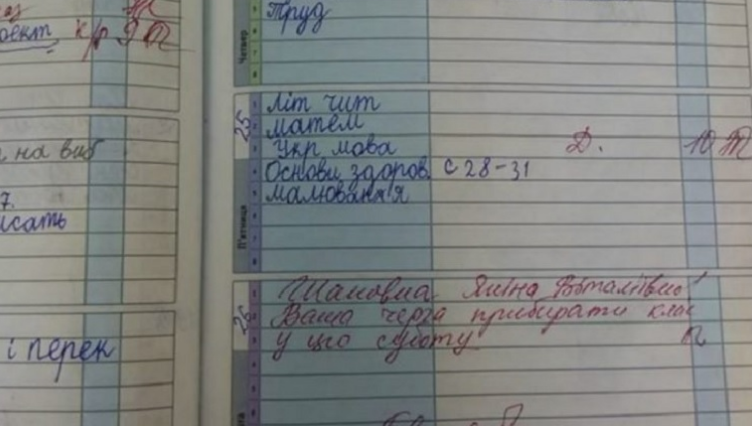 оект к/р 9
Труд
Четвер
25
Літ чит
матем
Укр мова Д. 10
на виб
Основи здоров. с 28-31
7.
малювання
исать
П'ятниця
26
Шановна Яніна Віталіївно!
Ваша черга прибирати клас
у цю суботу
і перек